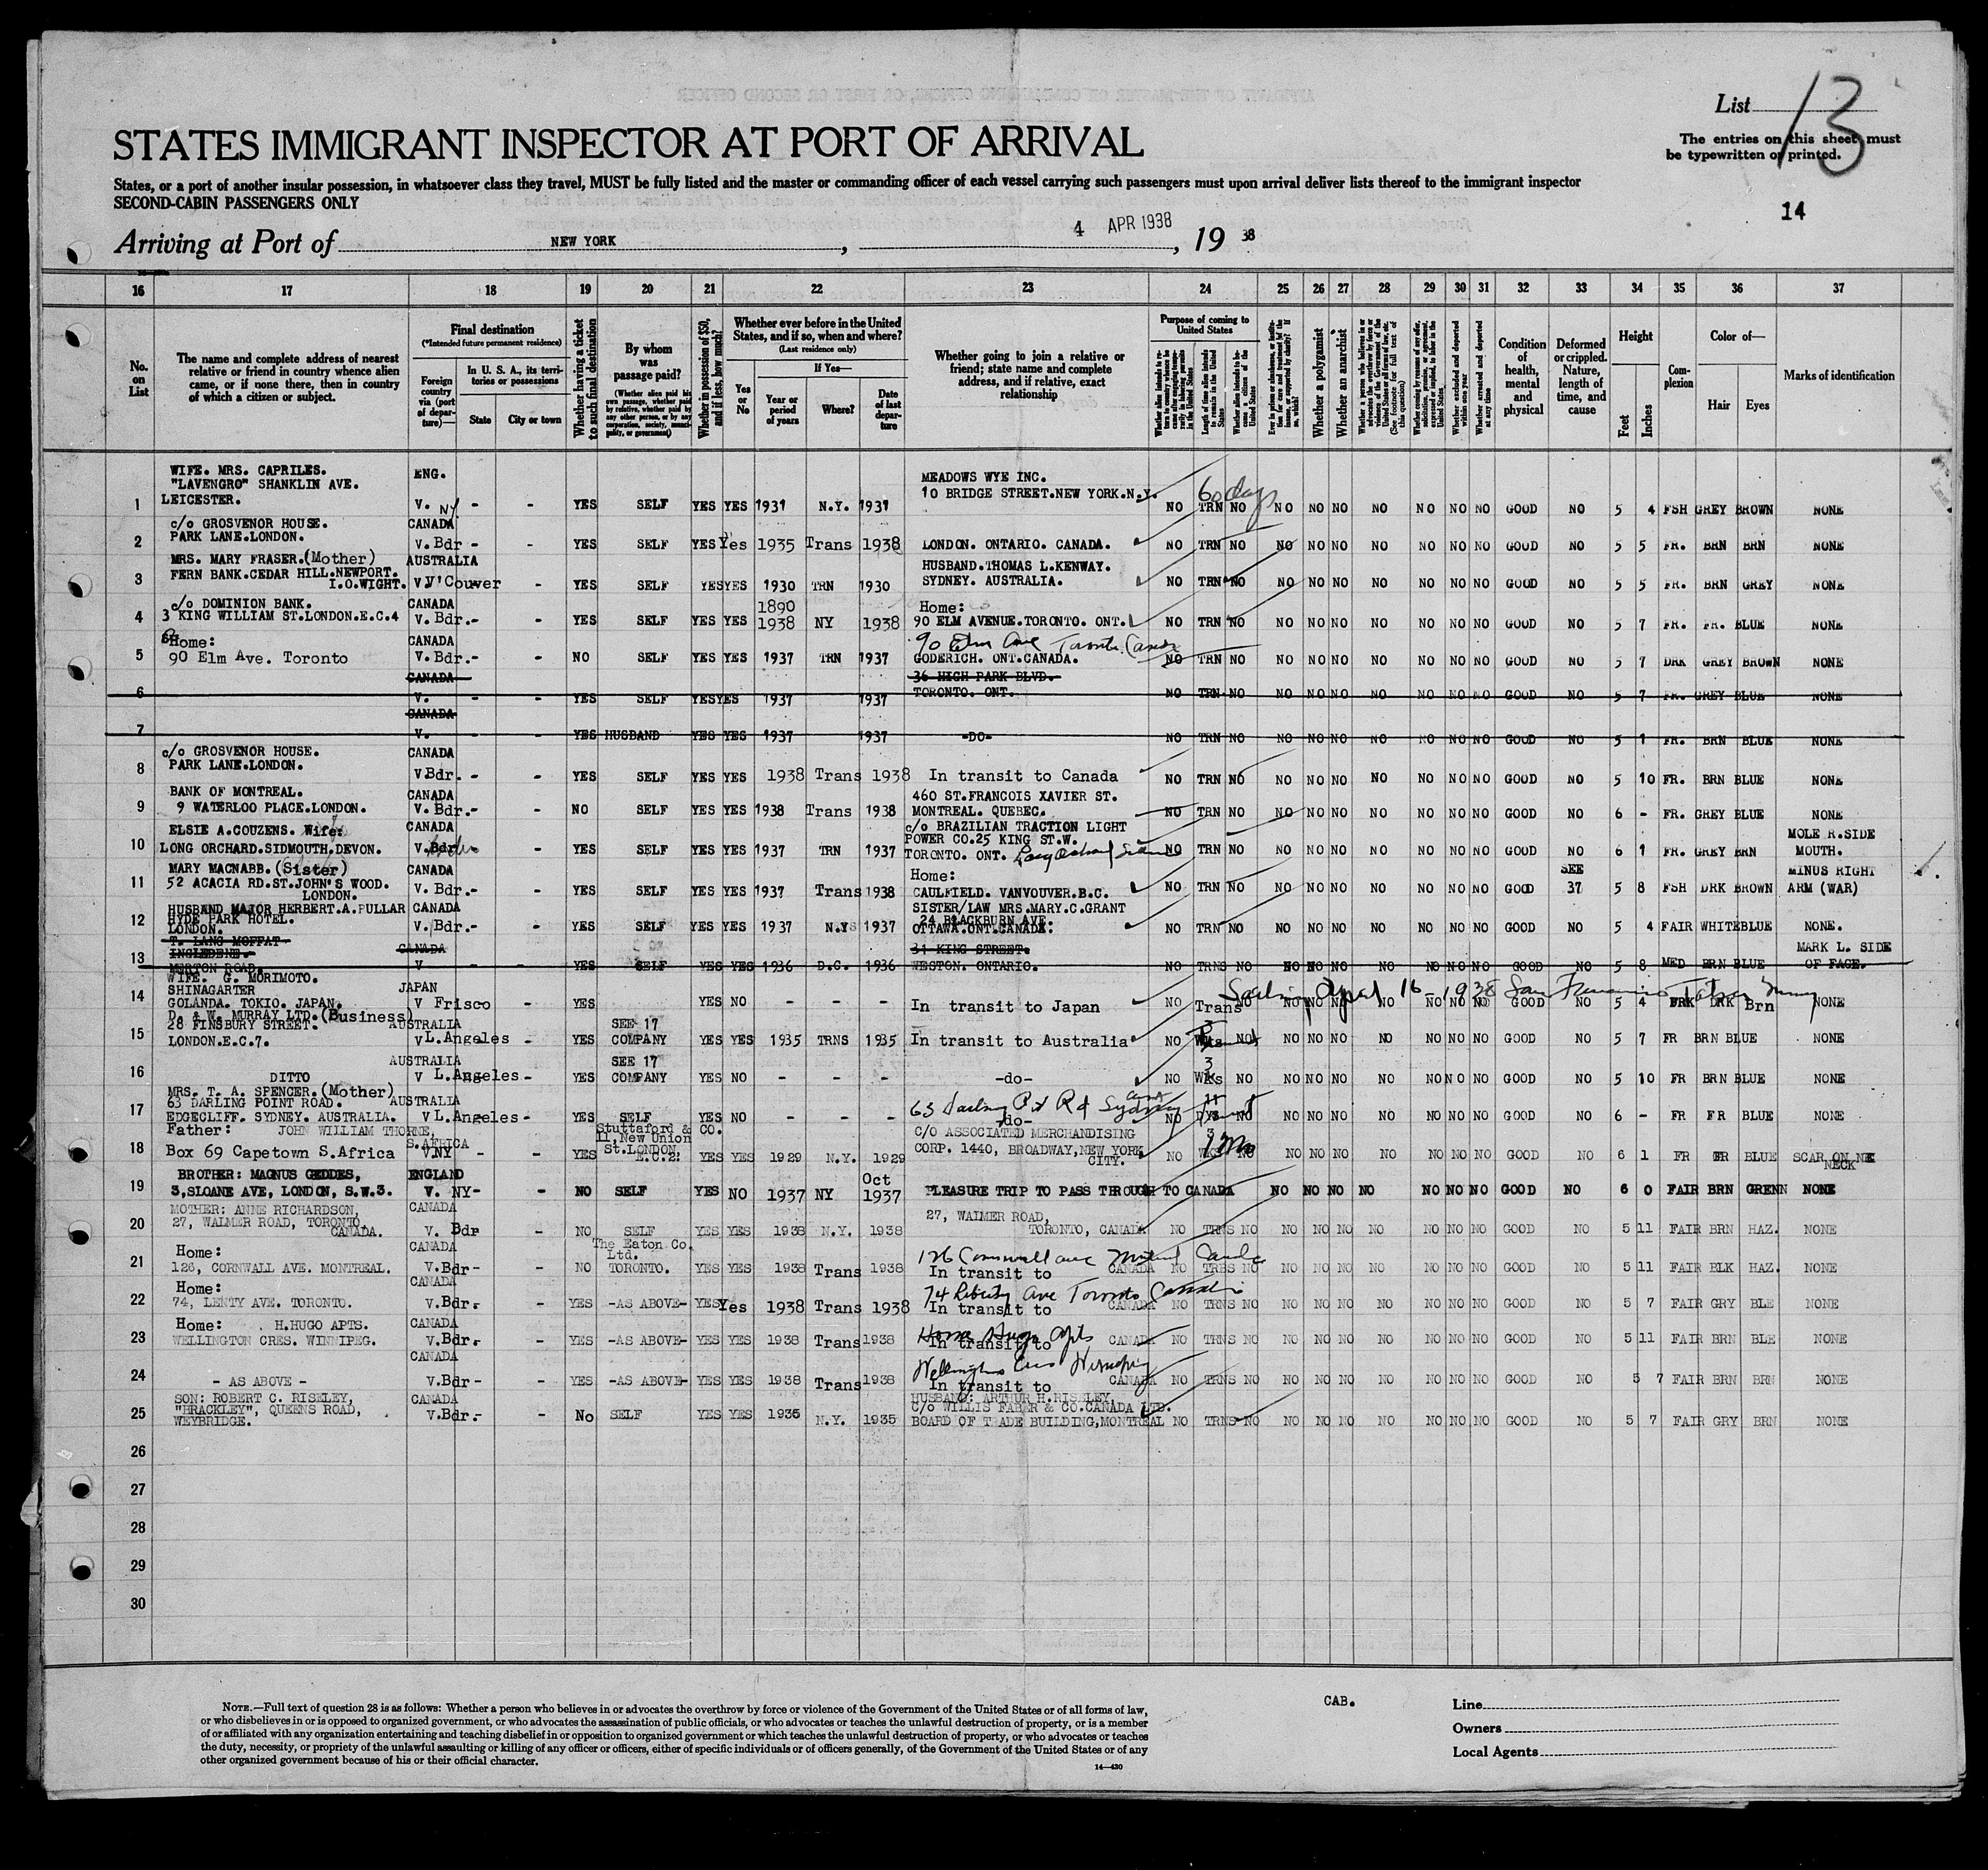 List 13
STATES IMMIGRANT INSPECTOR AT PORT OF ARRIVAL
The entries on this sheet must
be typewritten or printed.
States, or a port of another insular possession, in whatsoever class they travel, MUST be fully listed and the master or commanding officer of each vessel carrying such passengers must upon arrival deliver lists thereof to the immigrant inspector
SECOND-CABIN PASSENGERS ONLY
14
Arriving at Port of NEW YORK, 4 APR 1938, 19 38
16 17 18 19 20 21 22 23 24 25 26 27 28 29 30 31 32 33 34 35 36 37
No. on List
The name and complete address of nearest relative or friend in country whence alien came, or if none there, then in country of which a citizen or subject.
Final destination
(*Intended future permanent residence)
Foreign country via (port of departure)—
In U. S. A., its territories or possessions
State
City or town
Whether having a ticket to such final destination
By whom was passage paid?
(Whether alien paid his own passage, whether paid by relative, whether paid by any other person, or by any corporation, society, municipality, or government)
Whether in possession of $50, and if less, how much?
Whether ever before in the United States, and if so, when and where?
(Last residence only)
Yes or No
If Yes—
Year or period of years
Where?
Date of last departure
Whether going to join a relative or friend; state name and complete address, and if relative, exact relationship
Purpose of coming to United States
Length of time alien intends to remain in the United States
Whether alien intends to become a citizen of the United States
Whether a polygamist
Whether an anarchist
(See footnote for full text of this question)
Whether excluded and deported within one year
Whether arrested and deported at any time
Condition of health, mental and physical
Deformed or crippled. Nature, length of time, and cause
Height
Feet
Inches
Complexion
Color of—
Hair
Eyes
Marks of identification
WIFE. MRS. CAPRILES. ENG. MEADOWS WYE INC.
"LAVENGRO" SHANKLIN AVE. 10 BRIDGE STREET.NEW YORK.N.Y. 60 days
1 LEICESTER. V. NY. - - YES SELF YES YES 1931 N.Y. 1931 NO TRN NO NO NO NO NO NO NO NO GOOD NO 5 4 FSH GREY BROWN NONE
c/o GROSVENOR HOUSE. CANADA
2 PARK LANE.LONDON. V.Bdr - - YES SELF YES Yes 1935 Trans 1938 LONDON. ONTARIO. CANADA. NO TRN NO NO NO NO NO NO NO NO GOOD NO 5 5 FR. BRN BRN NONE
MRS. MARY FRASER.(Mother) AUSTRALIA HUSBAND.THOMAS L.KENWAY.
3 FERN BANK.CEDAR HILL.NEWPORT. I.O.WIGHT. V V'Couver - YES SELF YES YES 1930 TRN 1930 SYDNEY. AUSTRALIA. NO TRN NO NO NO NO NO NO NO NO GOOD NO 5 5 FR. BRN GREY NONE
c/o DOMINION BANK. CANADA 1890 Home:
4 3 KING WILLIAM ST.LONDON.E.C.4 V. Bdr.- - YES SELF YES YES 1938 NY 1938 90 ELM AVENUE.TORONTO. ONT. NO TRN NO NO NO NO NO NO NO NO GOOD NO 5 7 FR. FR. BLUE NONE
Home: CANADA 90 Elm Ave Toronto Canada
5 90 Elm Ave. Toronto V.Bdr.- - NO SELF YES YES 1937 TRN 1937 GODERICH. ONT.CANADA. NO TRN NO NO NO NO NO NO NO NO GOOD NO 5 7 DRK GREY BROWN NONE
CANADA 36 HIGH PARK BLVD.
6 V. - - YES SELF YES YES 1937 1937 TORONTO. ONT. NO TRN NO NO NO NO NO NO NO NO GOOD NO 5 7 FR. GREY BLUE NONE
CANADA
7 V. - - YES HUSBAND YES YES 1937 1937 -DO- NO TRN NO NO NO NO NO NO NO NO GOOD NO 5 1 FR. BRN BLUE NONE
c/o GROSVENOR HOUSE. CANADA
8 PARK LANE.LONDON. V Bdr. - - YES SELF YES YES 1938 Trans 1938 In transit to Canada NO TRN NO NO NO NO NO NO NO NO GOOD NO 5 10 FR. BRN BLUE NONE
BANK OF MONTREAL. CANADA 460 ST.FRANCOIS XAVIER ST.
9 9 WATERLOO PLACE.LONDON. V. Bdr.- - NO SELF YES YES 1938 Trans 1938 MONTREAL. QUEBEC. NO TRN NO NO NO NO NO NO NO NO GOOD NO 6 - FR. GREY BLUE NONE
ELSIE A.COUZENS. Wife: CANADA c/o BRAZILIAN TRACTION LIGHT POWER CO.25 KING ST.W. MOLE R.SIDE
10 LONG ORCHARD.SIDMOUTH.DEVON. V.Bdr - YES SELF YES YES 1937 TRN 1937 TORONTO. ONT. NO TRN NO NO NO NO NO NO NO NO GOOD NO 6 1 FR. GREY BRN MOUTH.
MARY MACNABB.(Sister) CANADA Home: SEE MINUS RIGHT
11 52 ACACIA RD.ST.JOHN'S WOOD. LONDON. V. Bdr.- - YES SELF YES YES 1937 Trans 1938 CAULFIELD. VANVOUVER.B.C. NO TRN NO NO NO NO NO NO NO NO GOOD 37 5 8 FSH DRK BROWN ARM (WAR)
HUSBAND MAJOR HERBERT.A.PULLAR CANADA SISTER/LAW MRS.MARY.C.GRANT
HYDE PARK HOTEL. 24 BLACKBURN AVE.
12 LONDON. V. Bdr.- - YES SELF YES YES 1937 N.Y 1937 OTTAWA.ONT.CANADA. NO TRN NO NO NO NO NO NO NO NO GOOD NO 5 4 FAIR WHITE BLUE NONE.
T. LANG MOFFAT CANADA 34 KING STREET. MARK L. SIDE
INGLEDENE.
13 MERTON ROAD. V - - YES SELF YES YES 1936 D.C. 1936 WESTON. ONTARIO. NO TRNS NO NO NO NO NO NO NO NO GOOD NO 5 8 MED BRN BLUE OF FACE.
WIFE. G. MORIMOTO.
SHINAGARTER JAPAN Sailing April 16-1938 San Francisco
14 GOLANDA. TOKIO. JAPAN. V Frisco - YES YES NO - - - In transit to Japan NO Trans NO NO NO NO NO NO NO GOOD NO 5 4 DRK Brn NONE
D. & W. MURRAY LTD.(Business)
28 FINSBURY STREET. AUSTRALIA SEE 17
15 LONDON.E.C.7. V L.Angeles - YES COMPANY YES YES 1935 TRNS 1935 In transit to Australia NO NO NO NO NO NO NO NO NO GOOD NO 5 7 FR BRN BLUE NONE
AUSTRALIA SEE 17 3
16 DITTO V L.Angeles- YES COMPANY YES NO - - - -do- NO Wks NO NO NO NO NO NO NO NO GOOD NO 5 10 FR BRN BLUE NONE
MRS. T. A. SPENCER.(Mother)
63 DARLING POINT ROAD. AUSTRALIA 63 Darling Pt Rd Sydney
17 EDGECLIFF. SYDNEY. AUSTRALIA. V L.Angeles- YES SELF YES NO - - - -do- NO NO NO NO NO NO NO NO NO GOOD NO 6 - FR FR BLUE NONE
Father: JOHN WILLIAM THORNE, S.AFRICA Stuttaford & CO. 11,New Union St.LONDON E.C.2. C/O ASSOCIATED MERCHANDISING 3
18 Box 69 Capetown S.Africa V.NY - - YES YES YES 1929 N.Y. 1929 CORP. 1440, BROADWAY,NEW YORK CITY. NO NO NO NO NO NO NO NO NO GOOD NO 6 1 FR FR BLUE SCAR ON NECK
BROTHER: MAGNUS GEDDES, ENGLAND Oct
19 3,SLOANE AVE, LONDON, S.W.3. V. NY- - NO SELF YES NO 1937 NY 1937 PLEASURE TRIP TO PASS THROUGH TO CANADA NO NO NO NO NO NO NO GOOD NO 6 0 FAIR BRN GRENN NONE
MOTHER: ANNE RICHARDSON, CANADA 27, WALMER ROAD,
20 27, WALMER ROAD, TORONTO, CANADA. V. Bdr - NO SELF YES YES 1938 N.Y. 1938 TORONTO, CANADA NO TRNS NO NO NO NO NO NO NO NO GOOD NO 5 11 FAIR BRN HAZ. NONE
Home: CANADA The Eaton Co. Ltd. 126 Cornwall ave
21 126, CORNWALL AVE. MONTREAL. V.Bdr- - NO TORONTO. YES YES 1938 Trans 1938 In transit to CANADA NO TRNS NO NO NO NO NO NO NO NO GOOD NO 5 11 FAIR BLK HAZ. NONE
Home: CANADA 74 Ave Toronto Canada
22 74, LENTY AVE. TORONTO. V.Bdr. - YES -AS ABOVE- YES Yes 1938 Trans 1938 In transit to CANADA NO TRNS NO NO NO NO NO NO NO NO GOOD NO 5 7 FAIR GRY BLE NONE
Home: H.HUGO APTS. CANADA Home Hugo Apts
23 WELLINGTON CRES. WINNIPEG. V.Bdr.- - YES -AS ABOVE- YES YES 1938 Trans 1938 In transit to CANADA NO TRNS NO NO NO NO NO NO NO NO GOOD NO 5 11 FAIR BRN BLE NONE
CANADA Wellington Cres Winnipeg
24 - AS ABOVE - V.Bdr- - YES -AS ABOVE- YES YES 1938 Trans 1938 In transit to CANADA NO TRNS NO NO NO NO NO NO NO NO GOOD NO 5 7 FAIR BRN BRN NONE
SON: ROBERT C. RISELEY, CANADA HUSBAND: ARTHUR H.RISELEY,
"HRACKLEY", QUEENS ROAD, C/O WILLIS FABER & CO.CANADA LTD.
25 WEYBRIDGE. V.Bdr.- - No SELF YES YES 1935 N.Y. 1935 BOARD OF TRADE BUILDING,MONTREAL NO TRNS NO NO NO NO NO NO NO NO GOOD NO 5 7 FAIR GRY BRN NONE
26
27
28
29
30
NOTE.—Full text of question 28 is as follows: Whether a person who believes in or advocates the overthrow by force or violence of the Government of the United States or of all forms of law,
or who disbelieves in or is opposed to organized government, or who advocates the assassination of public officials, or who advocates or teaches the unlawful destruction of property, or is a member
of or affiliated with any organization entertaining and teaching disbelief in or opposition to organized government or which teaches the unlawful destruction of property, or who advocates or teaches
the duty, necessity, or propriety of the unlawful assaulting or killing of any officer or officers, either of specific individuals or of officers generally, of the Government of the United States or of any
other organized government because of his or their official character.
14—430
CAB.
Line
Owners
Local Agents